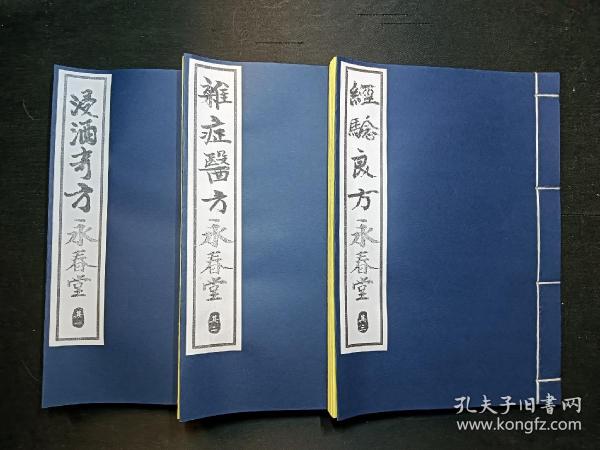 浸酒奇方永春堂
其一
雜症醫方永春堂
其二
經驗良方永春堂
其三
孔夫子旧書网
www.kongfz.com